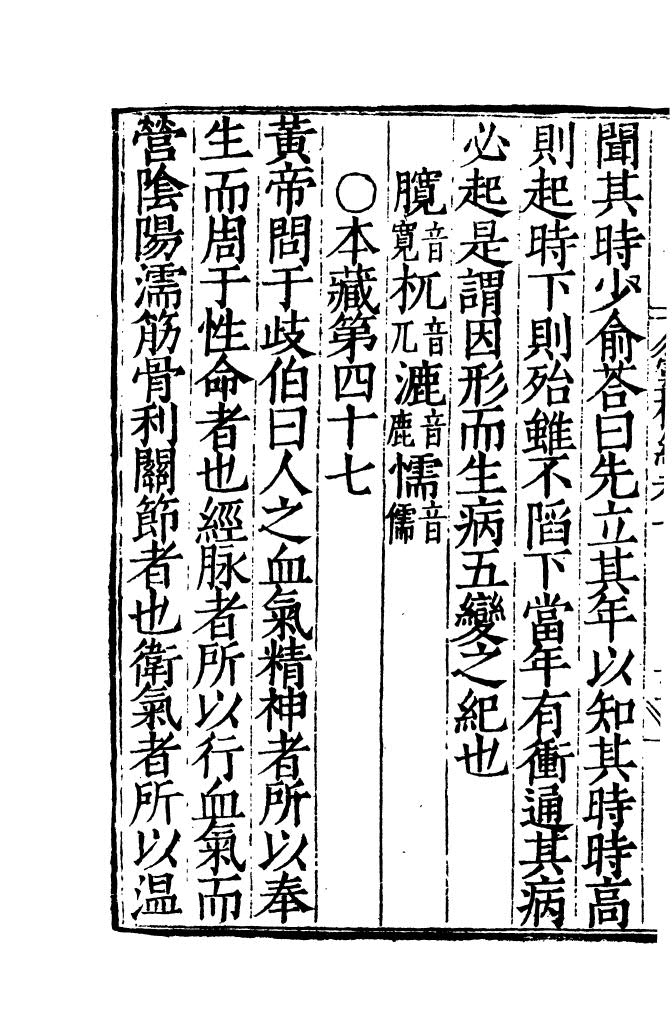 聞其時少俞荅曰先立其年以知其時時高
則起時下則殆雖不陷下當年有衝通其病
必起是謂因形而生病五變之紀也
臗音寛杌音兀漉音鹿懦音儒
○本藏第四十七
黃帝問于歧伯曰人之血氣精神者所以奉
生而周于性命者也經脉者所以行血氣而
營陰陽濡筋骨利關節者也衛氣者所以温